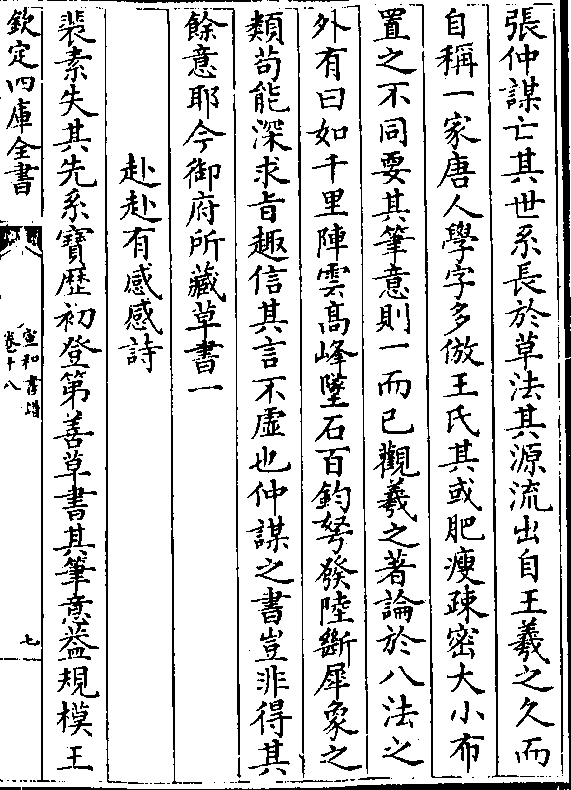 張仲謀亡其世系長於草法其源流出自王羲之久而
自稱一家唐人學字多倣王氏其或肥瘦疎密大小布
置之不同要其筆意則一而已觀羲之著論於八法之
外有曰如千里陣雲高峰墜石百鈞弩發陸斷犀象之
類苟能深求旨趣信其言不虛也仲謀之書豈非得其
餘意耶今御府所藏草書一
赴赴有感感詩
裴素失其先系寶歴初登第善草書其筆意葢規模王
欽定四庫全書
宣和書譜
卷十八
七